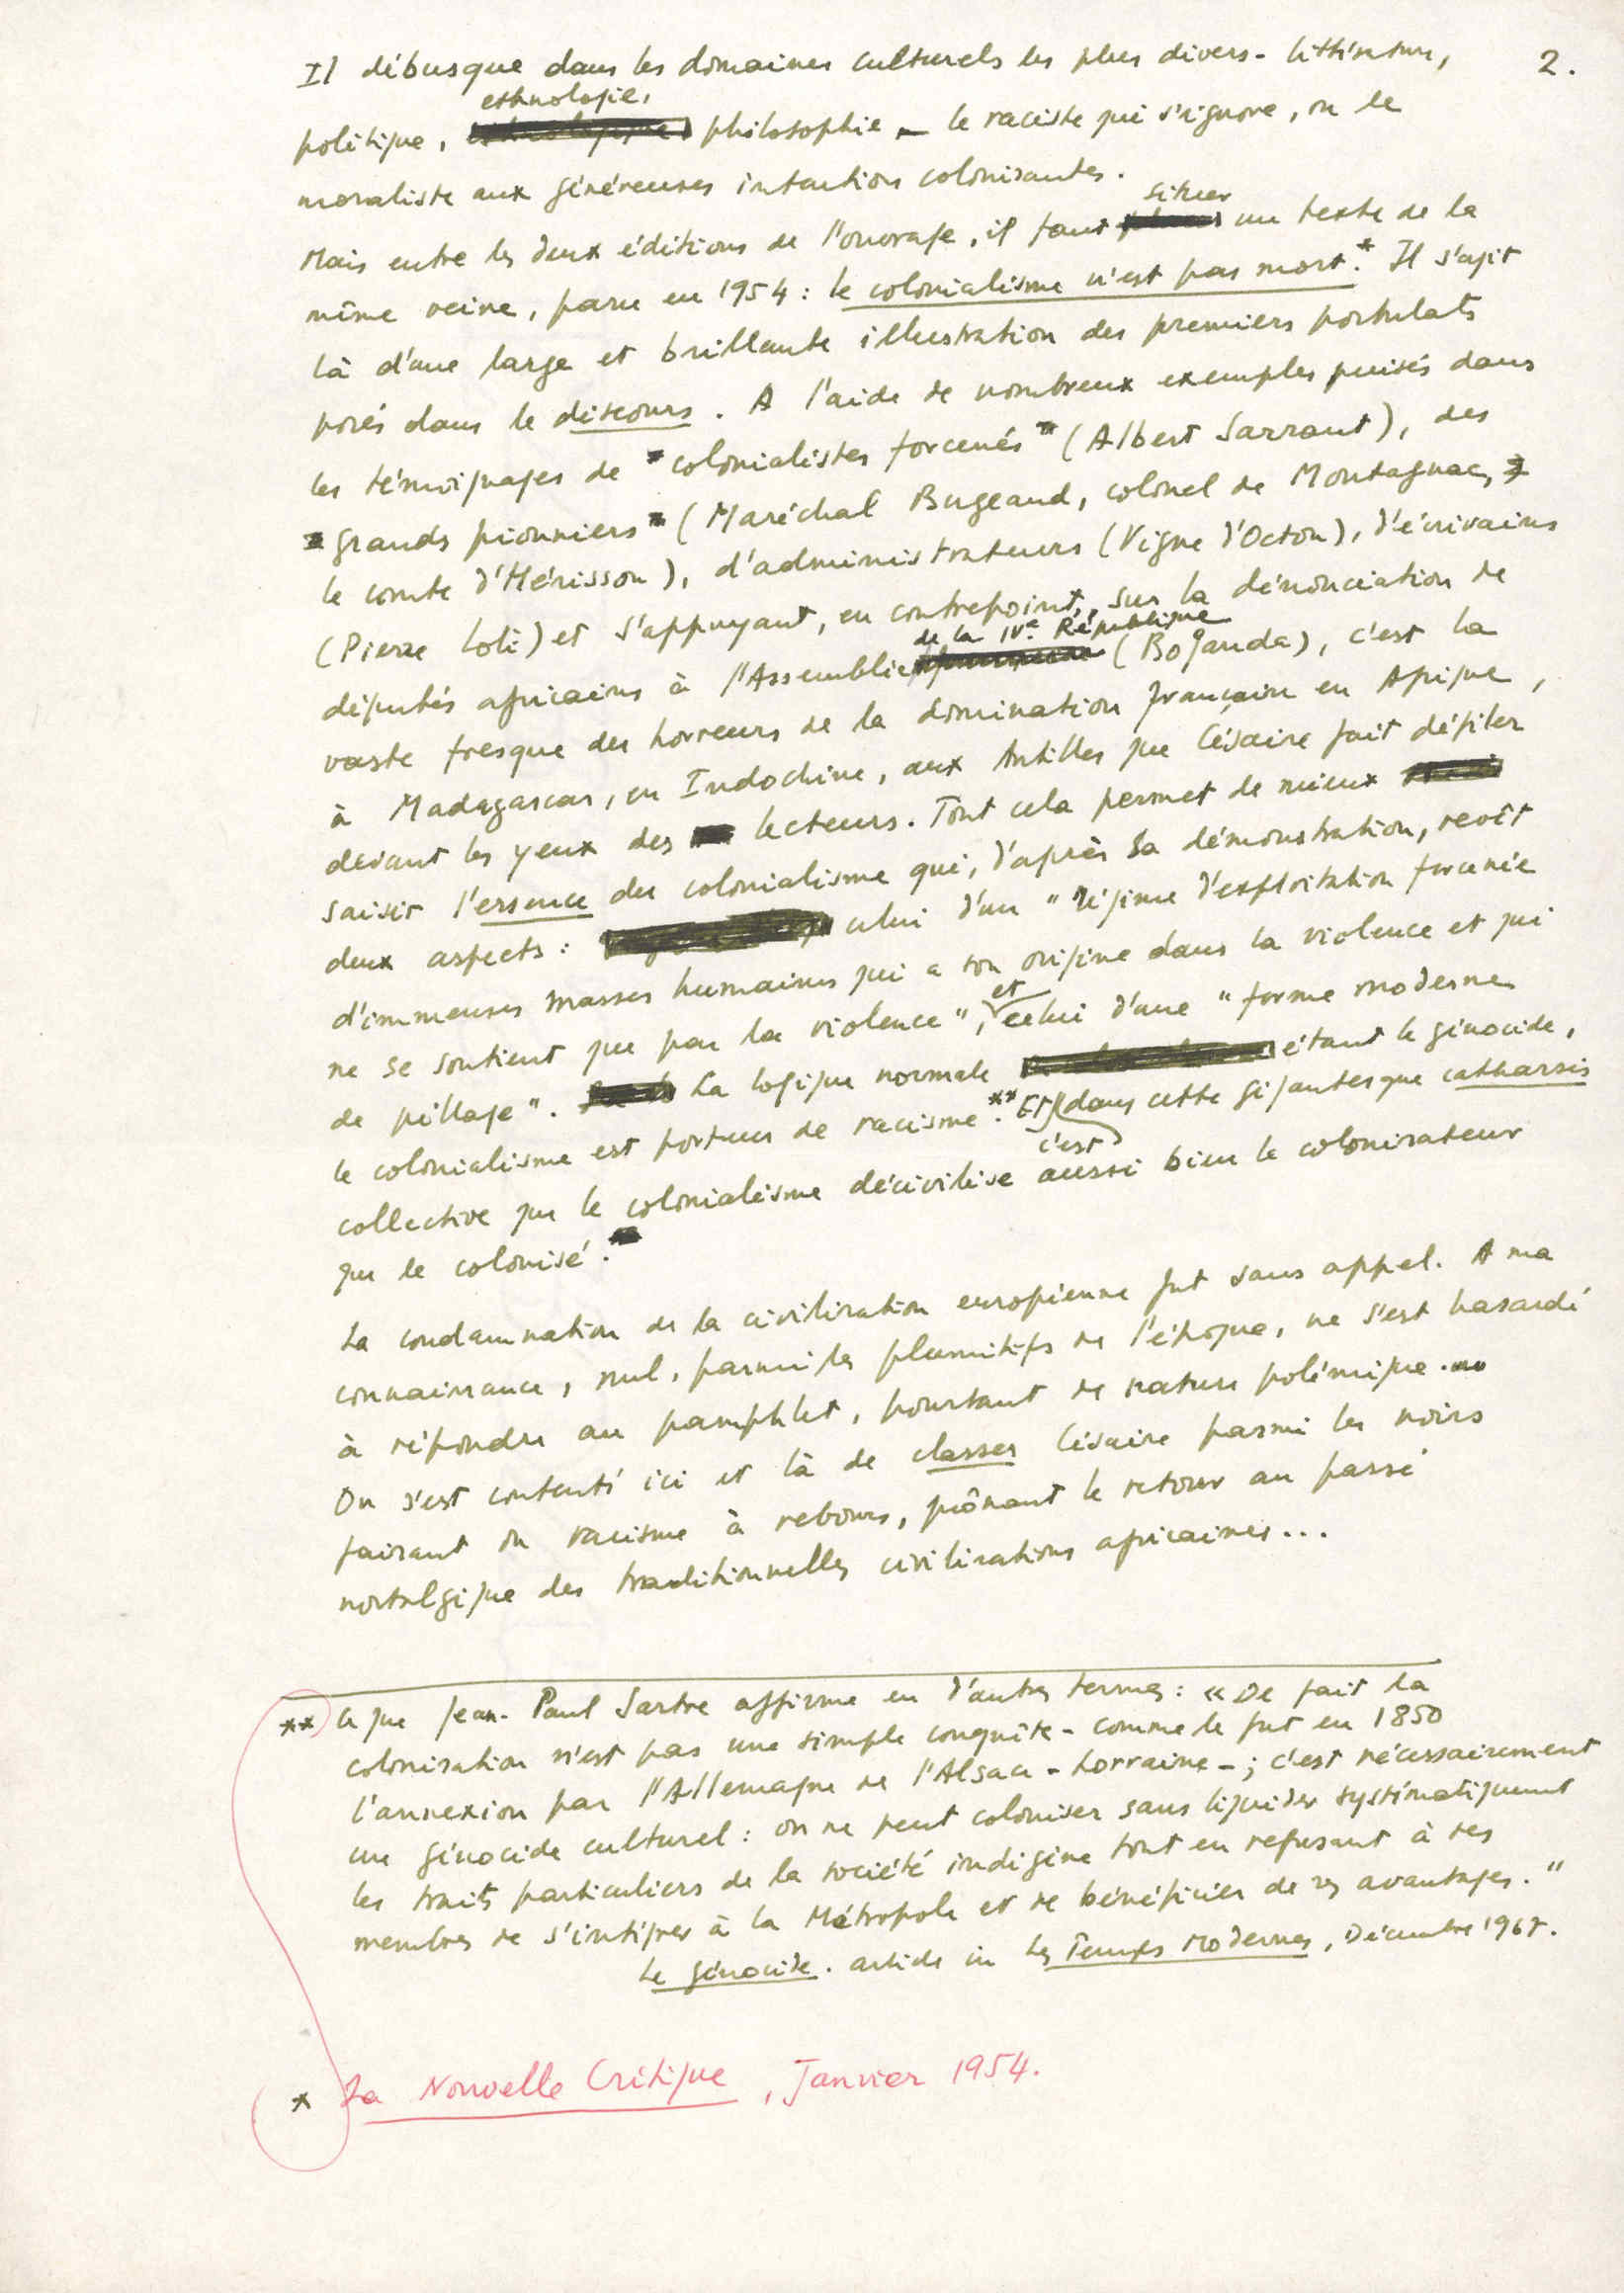 2.
Il débusque dans les domaines culturels les plus divers - littérature,
politique, ethnologie, philosophie - le raciste qui s'ignore, ou le
moraliste aux généreuses intentions colonisantes.
Mais entre les deux éditions de l'ouvrage, il faut situer un texte de la
même veine, paru en 1954 : le colonialisme n'est pas mort.* Il s'agit
là d'une large et brillante illustration des premiers postulats
posés dans le discours. A l'aide de nombreux exemples puisés dans
les témoignages de "colonialistes forcenés" (Albert Sarraut), des
"grands pionniers" (Maréchal Bugeaud, colonel de Montagnac,
le comte d'Hérisson), d'administrateurs (Vigne d'Octon), d'écrivains
(Pierre Loti) et s'appuyant, en contrepoint, sur la dénonciation de
députés africains à l'Assemblée de la IVe République (Boganda), c'est la
vaste fresque des horreurs de la domination française en Afrique,
à Madagascar, en Indochine, aux Antilles que Césaire fait défiler
devant les yeux des lecteurs. Tout cela permet de mieux
saisir l'essence du colonialisme qui, d'après sa démonstration, revêt
deux aspects : celui d'un "régime d'exploitation forcenée
d'immenses masses humaines qui a son origine dans la violence et qui
ne se soutient que par la violence", et celui d'une "forme moderne
de pillage". La logique normale étant le génocide,
le colonialisme est porteur de racisme.** Et dans cette gigantesque catharsis
collective que le colonialisme décivilise c'est aussi bien le colonisateur
que le colonisé.
La condamnation de la civilisation européenne fut sans appel. A ma
connaissance, nul, parmi les plumitifs de l'époque, ne s'est hasardé
à répondre au pamphlet, pourtant de nature polémique.
On s'est contenté ici et là de classer Césaire parmi les noirs
faisant du racisme à rebours, prônant le retour au passé
nostalgique des traditionnelles civilisations africaines...
** Ce que Jean-Paul Sartre affirme en d'autres termes : « De fait la
colonisation n'est pas une simple conquête - comme le fut en 1850
l'annexion par l'Allemagne de l'Alsace-Lorraine - ; c'est nécessairement
un génocide culturel : on ne peut coloniser sans liquider systématiquement
les traits particuliers de la société indigène tout en refusant à ses
membres de s'intégrer à la Métropole et de bénéficier de ses avantages."
Le génocide. article in Les Temps Modernes, Décembre 1967.
* La Nouvelle Critique, Janvier 1954.